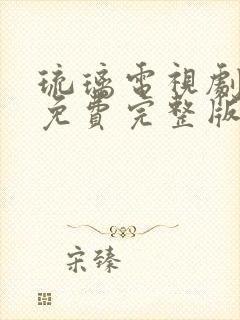 琉璃電視劇
免費完整版
宋臻